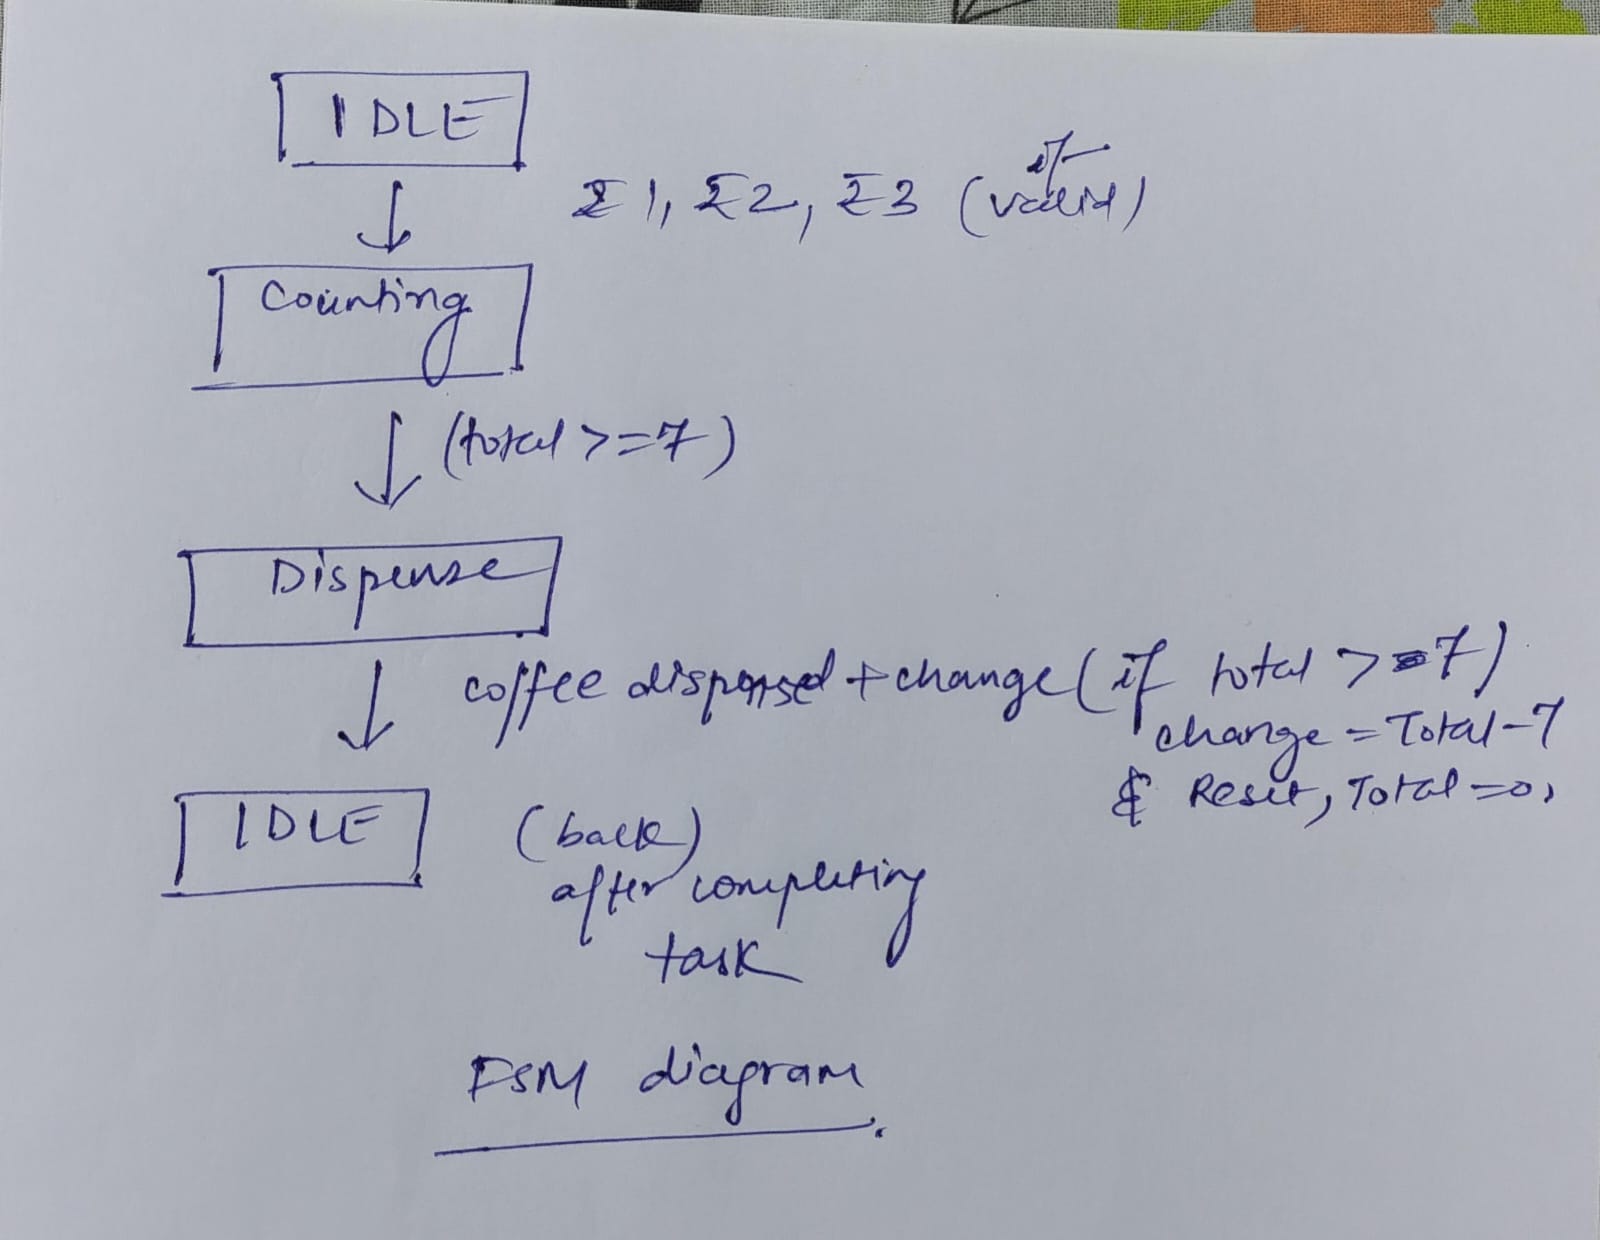 IDLE
₹1, ₹2, ₹3 (if valid)
Counting
(total >=7)
Dispense
coffee dispensed + change (if total >=7)
change = Total-7
& Reset, Total =0,
IDLE (back)
after completing
task
FSM diagram.